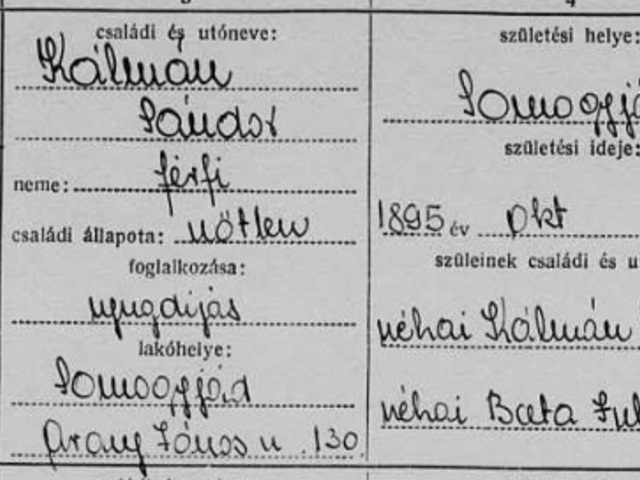 családi és utóneve:
Kálmán
Sándor
neme: férfi
családi állapota: nőtlen
foglalkozása:
nyugdíjás
lakóhelye:
Somogyjád
Arany János u. 130
születési helye:
Somogyjá
születési ideje:
1895 év Okt
szüleinek családi és u
néhai Kálmán
néhai Bata Jul